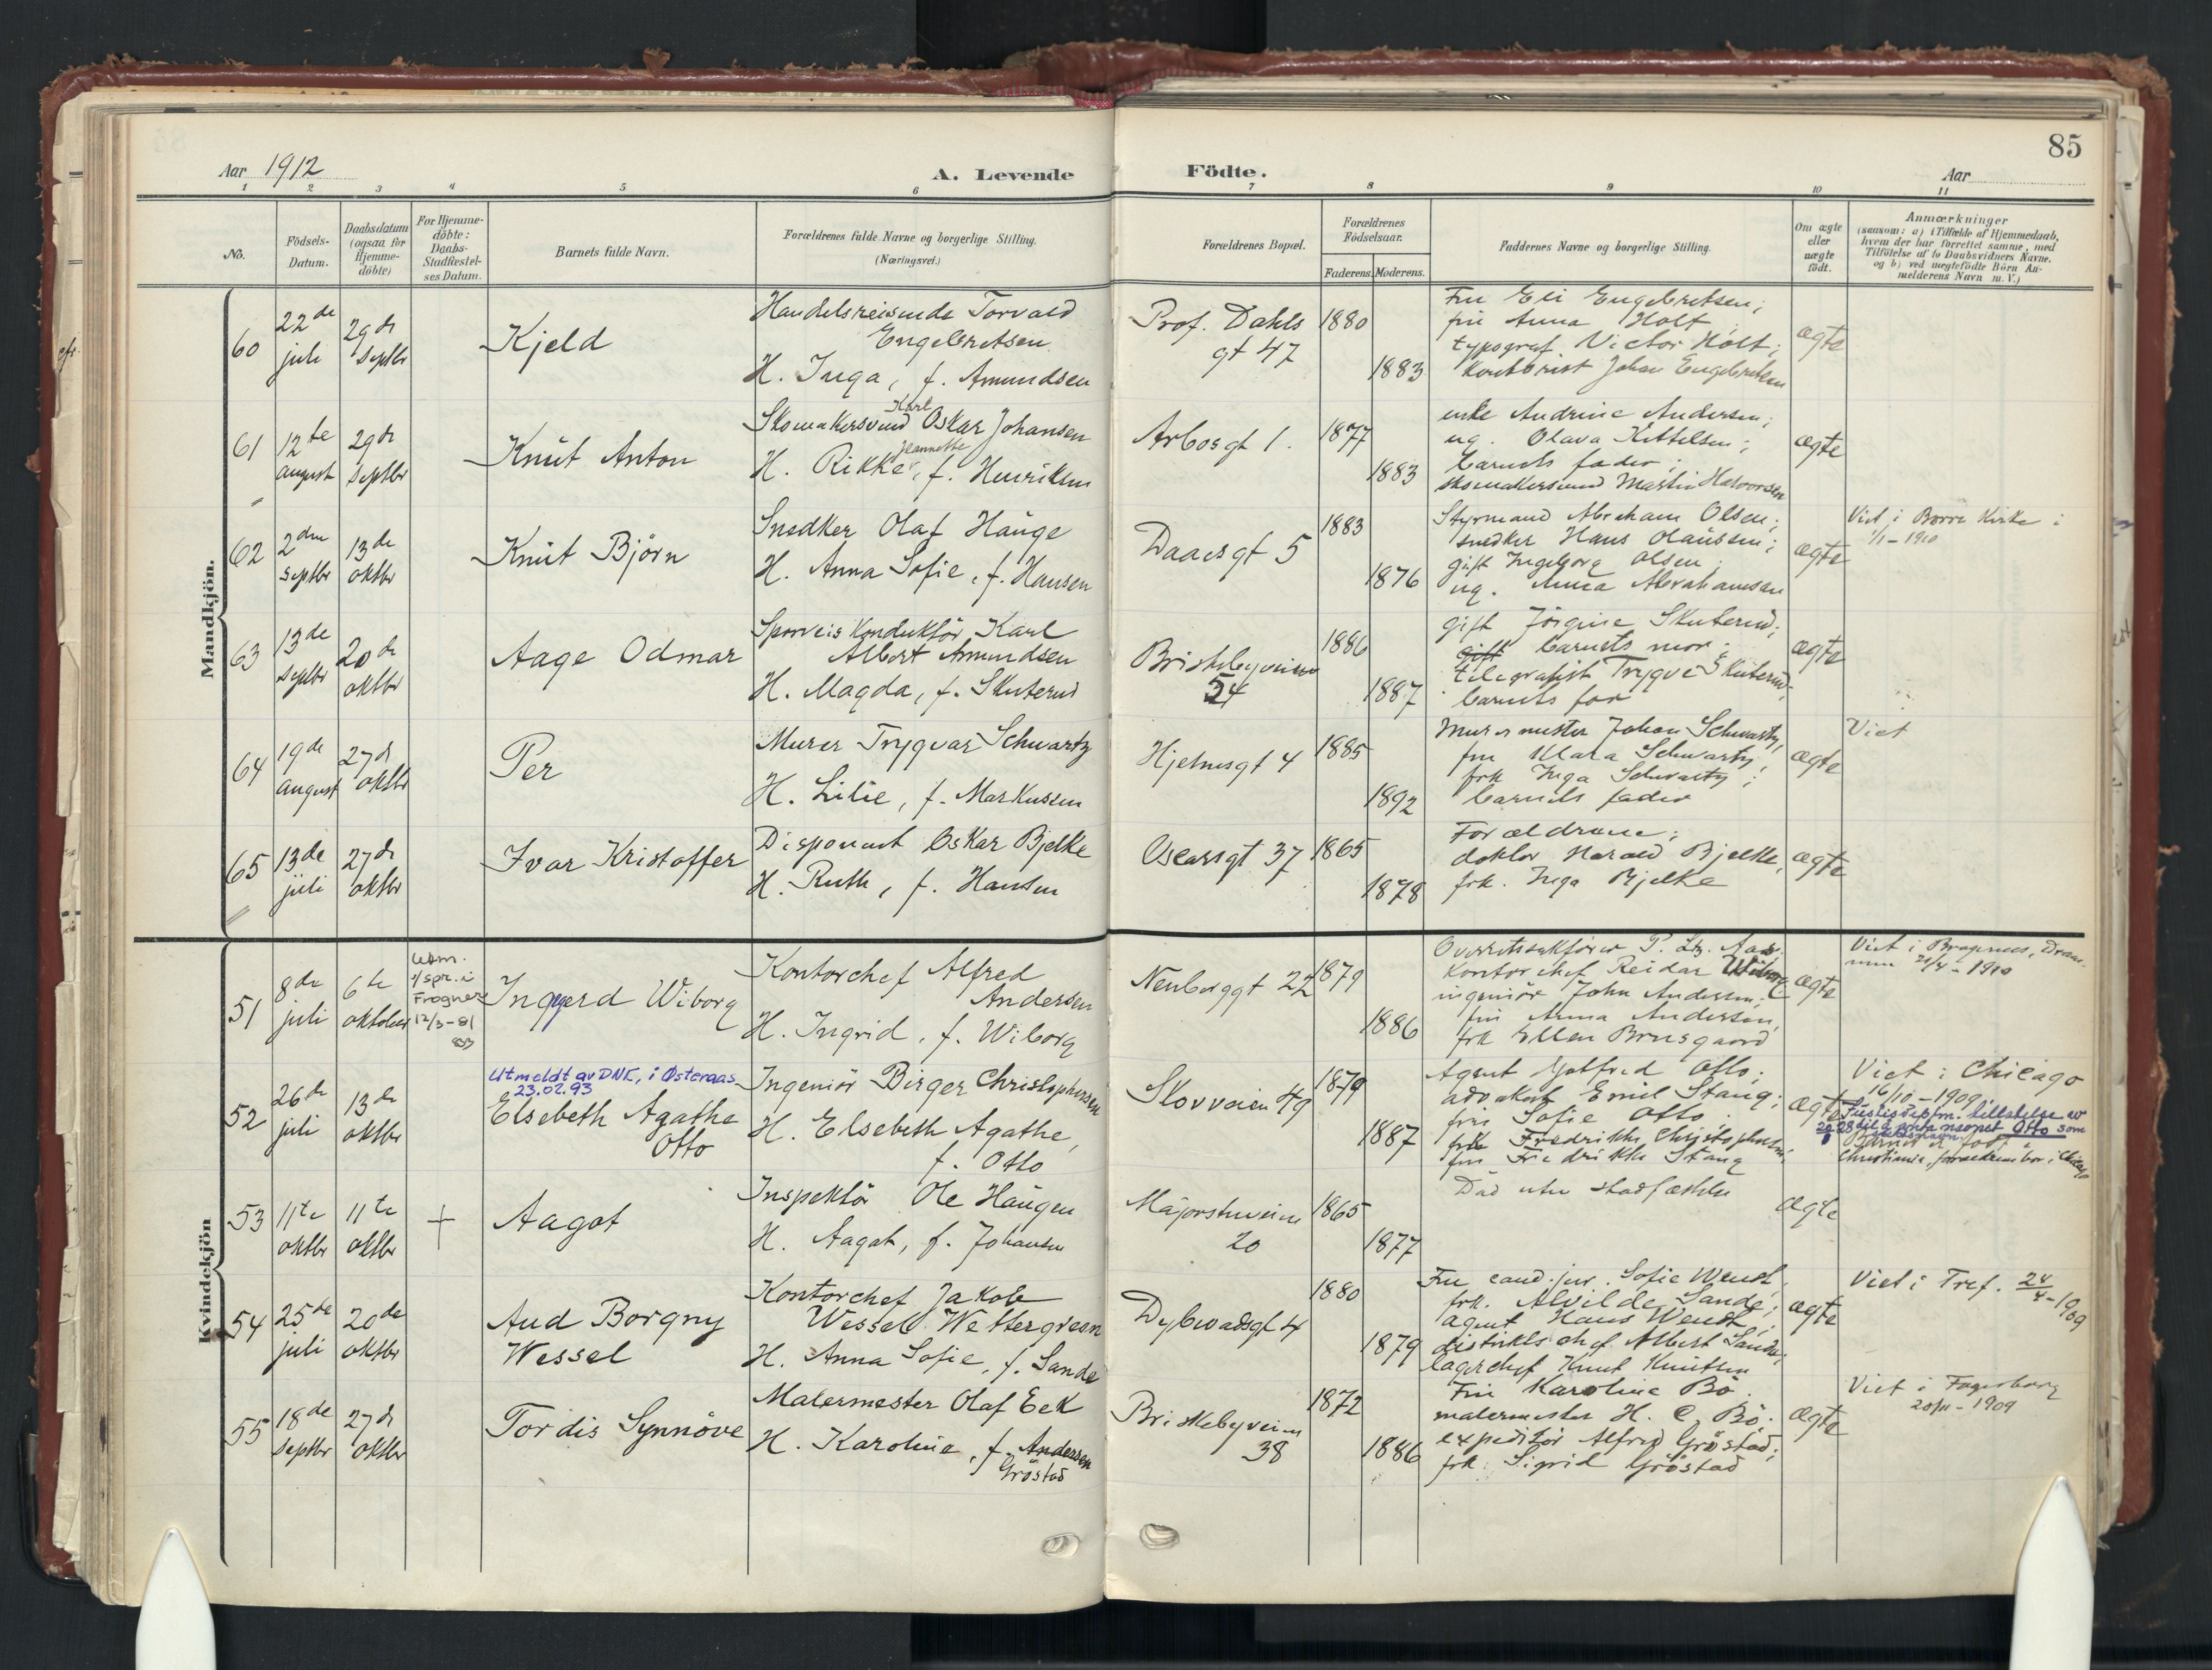 85
Aar 1912
A. Levende
Födte.
Aar
1 2 3 4 5 6 7 8 9 10 11
No.
Födsels-Datum.
Daabsdatum (ogsaa for Hjemme-döbte)
For Hjemme-döbte: Daabs-Stadfæstel-ses Datum.
Barnets fulde Navn.
Forældrenes fulde Navne og borgerlige Stilling.
(Næringsvei.)
Forældrenes Bopæl.
Forældrenes Födselsaar.
Faderens. Moderens.
Faddernes Navne og borgerlige Stilling.
Om ægte eller uægte födt.
Anmærkninger
(saasom: a) i Tilfælde af Hjemmedaab,
hvem der har forrettet samme, med
Tilföielse af to Daabsvidners Navne,
og b) ved uægtefödte Börn An-
melderens Navn m. V.)
Mandkjön.
60
22de juli
29de septbr
Kjeld
Handelsreisende Torvald
Engebretsen
H. Inga, f. Amundsen
Prof. Dahls
gt 47
1880
1883
Fru Eli Engebretsen;
fru Anna Holt
typograf Victor Holt;
kontorist Johan Engebretsen
ægte
61
12te august
29de septbr
Knut Anton
Karl
Skomakersvend Oskar Johansen
Jeannette
H. Rikke, f. Henriksen
Arbosgt 1.
1877
1883
enke Andrine Andersen;
ug. Olava Kittelsen;
barnets fader;
skomakersvend Martin Halvorsen
ægte
62
2den septbr
13de oktbr
Knut Björn
Snedker Olaf Hauge
H. Anna Sofie, f. Hansen
Daaesgt 5
1883
1876
Styrmand Abraham Olsen;
snedker Hans Olaussen;
gift Ingeborg Olsen
ug. Anna Abrahamsen
ægte
Viet i Borre Kirke i
1/1-1910
63
13de septbr
20de oktbr
Aage Odmar
Sporveiskonduktör Karl
Albert Amundsen
H. Magda, f. Skuterud
Briskebyveien
54
1886
1887
gift Jörgine Skuterud;
gift barnets mor;
telegrafist Trygve Skuterud;
barnets far
ægte
64
19de august
27de oktbr
Per
Murer Trygvar Schwartz
H. Lilie, f. Markussen
Hjelmsgt 4
1885
1892
Murermester Johan Schwartz,
fru Klara Schwartz;
frk Inga Schwartz;
barnets fader
ægte
Viet
65
13de juli
27de oktbr
Ivar Kristoffer
Disponent Oskar Bjelke
H. Ruth, f. Hansen
Oscarsgt 37
1865
1878
Forældrene;
doktor Harald Bjelke,
frk. Inga Bjelke
ægte
Kvindekjön
51
8de juli
6te oktober
Utm.
Frogner
12/3-81
Ingerd Wiborg
Kontorchef Alfred
Andersen
H. Ingrid, f. Wiborg
Neuberggt 22
1879
1886
Overretssakförer P.
kontorchef Reidar Wiborg
ingeniör John Andersen;
fru Anna Andersen,
frk Ellen Brusgaard
ægte
Viet i Bragernes, Dram-
men 21/4-1910
52
26de juli
13de oktbr
Utmeldt av DNK, i Østeraas
23.02.93
Elsebeth Agathe
Otto
Ingeniör Birger Christophersen
H. Elsebeth Agathe,
f. Otto
Skovveien 49
1879
1887
Agent Gotfred Otto;
advokat Emil Stang;
fru Sofie Otto;
frk Fredrikke Christophersen;
fru Fredrikke Stang
ægte
Viet i Chicago
16/10-1909
Justisdeptm. tillatelse av
Otto som
Barnet er födt i
Christiania, forældrene bor i Chicago
53
11te oktbr
11te oktbr
+
Aagot
Inspektör Ole Haugen
H. Aagot, f. Johansen
Majorstuveien
20
1865
1877
Död uten stadfæstelse
ægte
54
25de juli
20de oktbr
Aud Borgny
Wessel
Kontorchef Jakob
Wessel Wettergreen
H. Anna Sofie, f. Sande
Dybwadsgt 4
1880
1879
Fru cand. jur. Sofie Wendt,
frk. Alvilde Sande;
agent Hans Wendt,
distriktschef Albert Sande;
lagerchef Knut Knutsen
ægte
Viet i Tref. 24/4-1909
55
18de septbr
27de oktbr
Tordis Synnöve
Malermester Olaf Eek
H. Karoline, f. Andersen
Gröstad
Briskebyveien
38
1872
1886
Fru Karoline Bö
malermester H. C. Bö;
expeditör Alfred Gröstad;
frk. Sigrid Gröstad
ægte
Viet i Fagerborg
20/11-1909